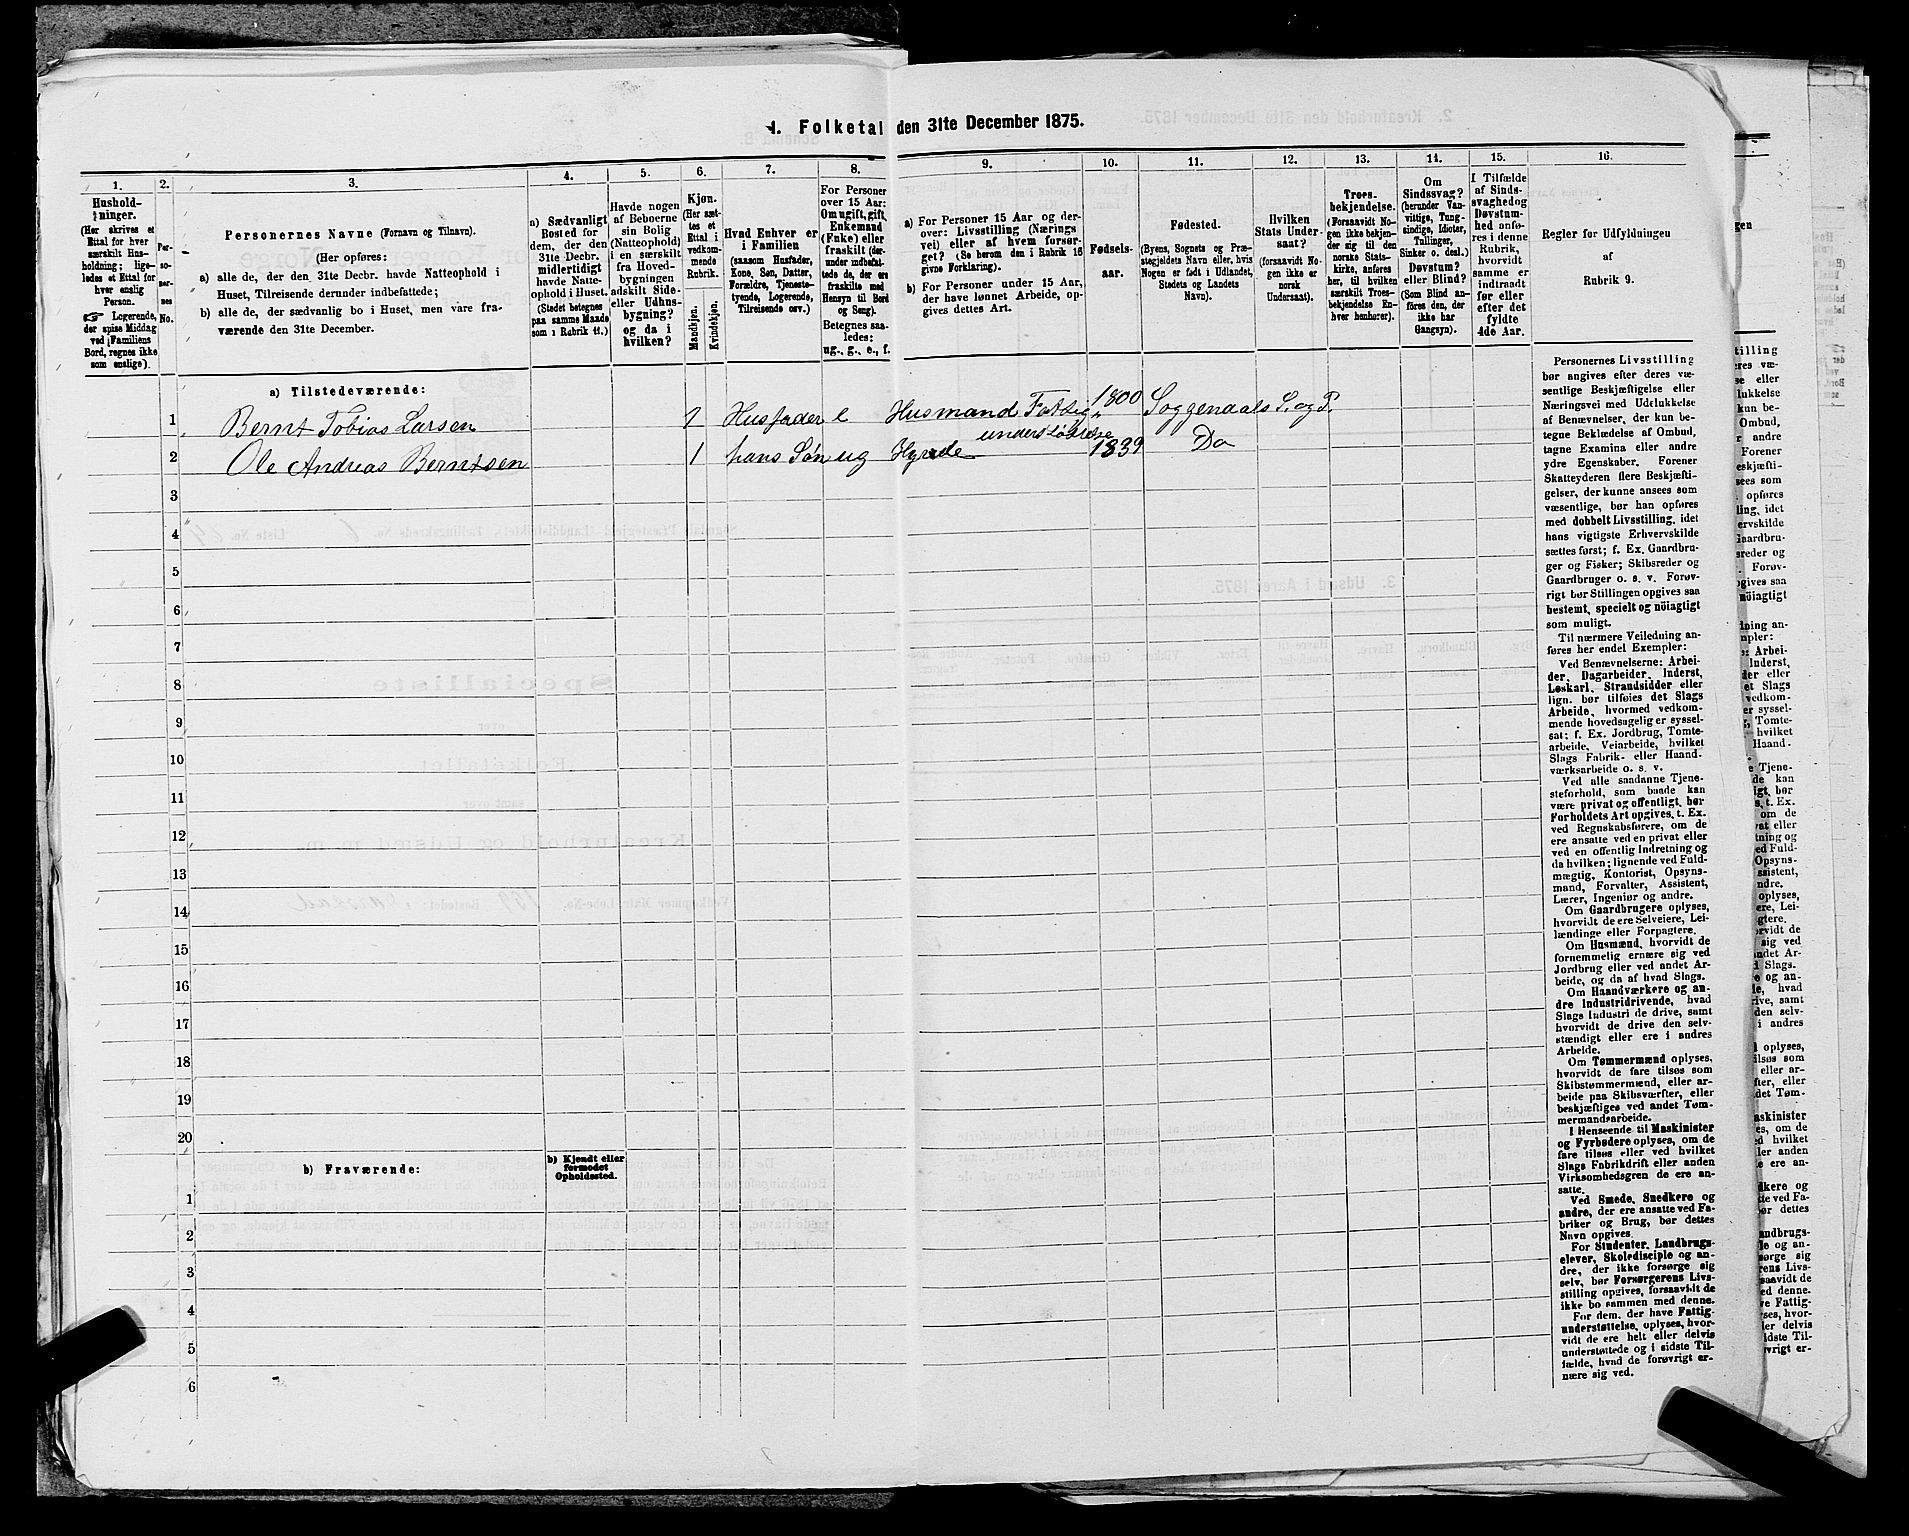 1. Folketal den 31te December 1875.
1.
Hushold-
ninger.
(Her skrives et
Ettal for hver
særskilt Hus-
holdning; lige-
ledes et Ettal for
hver enslig
Person.
Logerende,
der spise Middag
ved Familiens
Bord, regnes ikke
som enslige).
2.
Per-
so-
ner-
nes
No.
3.
Personernes Navne (Fornavn og Tilnavn).
(Her opføres:
a) alle de, der den 31te Decbr. havde Natteophold i
Huset, Tilreisende derunder indbefattede;
b) alle de, der sædvanlig bo i Huset, men vare fra-
værende den 31te December.
4.
a) Sædvanligt
Bosted for
dem, der den
31te Decbr.
midlertidigt
havde Natte-
ophold i Huset.
(Stedet betegnes
paa samme Maade
som i Rubrik 11.)
5.
Havde nogen
af Beboerne
sin Bolig
(Natteophold)
i en særskilt
fra Hoved-
bygningen
adskilt Side-
eller Udhus-
bygning?
og da i
hvilken?
6.
Kjøn.
(Her sæt-
tes et
Ettal i
vedkom-
mende
Rubrik.
Mandkjøn.
Kvindekjøn.
7.
Hvad Enhver er
i Familien
(saasom Husfader,
Kone, Søn, Datter,
Forældre, Tjeneste-
tyende, Logerende,
Tilreisende osv.)
8.
For Personer
over 15 Aar:
Om ugift, gift,
Enkemand
(Enke) eller
fraskilt (der-
under indbefat-
tede de, der ere
fraskilte med
Hensyn til Bord
og Seng).
Betegnes saa-
ledes:
ug., g., e., f.
9.
a) For Personer 15 Aar og der-
over: Livsstilling (Nærings
vei) eller af hvem forsør-
get? (Se herom den i Rubrik 16
givne Forklaring).
b) For Personer under 15 Aar,
der have lønnet Arbeide, op-
gives dettes Art.
10.
Fødsels-
aar.
11.
Fødested.
(Byens, Sognets og Præ-
stegjeldets Navn eller, hvis
Nogen er født i Udlandet,
Stedets og Landets
Navn).
12.
Hvilken
Stats Under-
saat?
(forsaavidt No-
gen ikke er
norsk
Undersaat).
13.
Troes-
bekjendelse.
(Forsaavidt No-
gen ikke bekjen-
der sig til den
norske Stats-
kirke, anføres
her, til hvilken
særskilt Troes-
bekjendelse En-
hver henhører).
14.
Om
Sindssvag?
(herunder Van-
vittige, Tung-
sindige, Idioter,
Tullinger,
Sinker o. desl.)
Døvstum?
eller Blind?
(Som Blind an-
føres den, der
ikke har
Gangsyn).
15.
I Tilfælde
af Sinds-
svaghed og
Døvstum-
hed anfø-
res i denne
Rubrik,
hvorvidt
samme er
indtraadt
før eller
efter det
fyldte
4de Aar.
16.
Regler for Udfyldningen
af
Rubrik 9.
a) Tilstedeværende:
1 Bernt Tobias Larsen 1 Husfader e Husmand Fattig- 1800 Soggendals S. og P.
understøttelse
2 Ole Andreas Berntsen 1 hans Søn ug Hyrde 1839 Do
3
4
5
6
7
8
9
10
11
12
13
14
15
16
17
18
19
20
b) Fraværende:
b) Kjendt eller
formodet
Opholdssted.
1
2
3
4
5
6
Personernes Livsstilling
bør angives efter deres væ-
sentlige Beskjæftigelse eller
Næringsvei med Udelukkelse
af Benævnelser, der kun be-
tegne Beklædelse af Ombud,
tagne Examina eller andre
ydre Egenskaber. Forener
Skatteyderen flere Beskjæfti-
gelser, der kunne ansees som
væsentlige, bør han opføres
med dobbelt Livsstilling, idet
hans vigtigste Erhvervskilde
sættes først; f. Ex. Gaardbru-
ger og Fisker; Skibsreder og
Gaardbruger o. s. v. Forøv-
rigt bør Stillingen opgives saa
bestemt, specielt og nöiagtigt
som muligt.
Til nærmere Veiledning an-
føres her endel Exempler:
Ved Benævnelserne: Arbei-
der, Dagarbeider, Inderst,
Løskarl, Strandsidder eller
lign. bør tilføies det Slags
Arbeide, hvormed vedkom-
mende hovedsagelig er syssel-
sat; f. Ex. Jordbrug, Tomte-
arbeide, Veiarbeide, hvilket
Slags Fabrik- eller Haand-
værksarbeide o. s. v.
Ved alle saadanne Tjene-
steforhold, som baade kan
være privat og offentligt, bør
Forholdets Art opgives, t. Ex.
ved Regnskabsførere, om de
ere ansatte ved en privat eller
ved en offentlig Indretning og
da hvilken; lignende ved Fuld-
mægtig, Kontorist, Opsyns-
mand, Forvalter, Assistent,
Lærer, Ingeniør og andre.
Om Gaardbrugere oplyses,
hvorvidt de ere Selveiere, Lei-
lændinge eller Forpagtere.
Om Husmænd, hvorvidt de
fornemmelig ernære sig ved
Jordbrug eller ved andet Ar-
beide, og da af hvad Slags.
Om Haandværkere og an-
dre Industridrivende, hvad
Slags Industri de drive, samt
hvorvidt de drive den selv-
stændigt eller ere i andres
Arbeide.
Om Tømmermænd oplyses,
hvorvidt de fare tilsøs som
Skibstømmermænd, eller ar-
beide paa Skibsværfter, eller
beskjæftiges ved andet Tøm-
mermandsarbeide.
I Henseende til Maskinister
og Fyrbødere oplyses, om de
fare tilsøs eller ved hvilket
Slags Fabrikdrift eller anden
Virksomhedsgren de ere an-
satte.
Ved Smede, Snedkere og
andre, der ere ansatte ved Fa-
briker og Brug, bør dettes
Navn opgives.
For Studenter, Landbrugs-
elever, Skoledisciple og an-
dre, der ikke forsørge sig
selv, bør Forsørgerens Livs-
stilling opgives, forsaavidt de
ikke bo sammen med denne.
For dem, der have Fattig-
understøttelse, oplyses, hvor-
vidt de ere helt eller delvis
understøttede og i sidste Til-
fælde, hvad de forøvrigt er-
nære sig ved.